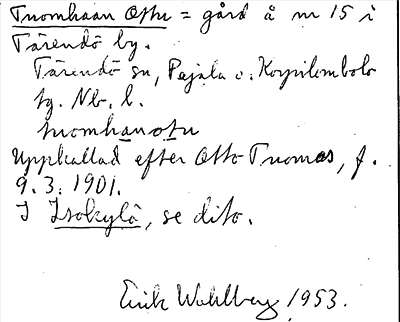 Tuomhaan Ottu = gård å nr 15 i
Tärendö by.
Tärendö sn, Pajala o. Korpilombolo
tg. Nb. l.
tuomhanotu
Uppkallad efter Otto Tuomas, f.
9.3.1901.
I Isokylä, se dito.
Erik Wahlberg 1953.